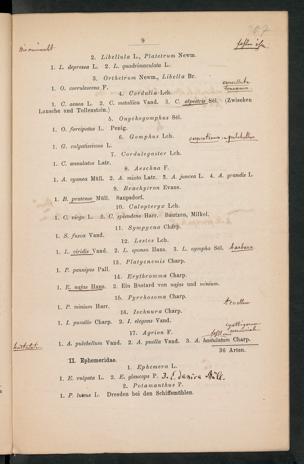 9
2. Libellula L., Platetrum Newm.
1. L. depressa L. 2. L. quadrimaculata L.
3. Orthetrum Newm., Libella Br.
1. O. coerulescens F.
4. Cordulia Lch.
1. C. aenea L. 2. C. metallica Vand. 3. C. alpestris Sél. (Zwischen
Lausche und Tollenstein.)
5. Onychogomphus Sél.
1. O. forcipatus L. Penig.
6. Gomphus Lch.
1. G. vulgatissimus L.
7. Cordulegaster Lch.
1. C. annulatus Latr.
8. Aeschna F.
1. A. cyanea Müll. 2. A. mixta Latr. 3. A. juncea L. 4. A. grandis L.
9. Brachytron Evans.
1. B. pratense Müll.
10. Calopteryx Lch.
1. C. virgo L. 2. C. splendens Harr. Bautzen, Milkel.
11. Sympycna Charp.
1. S. fusca Vand.
12. Lestes Lch.
1. L. viridis Vand. 2. L. sponsa Hans. 3. L. nympha Sél. barbara
13. Platycnemis Charp.
1. P. pennipes Pall.
14. Erythromma Charp.
1. E. najas Hans. 2. Ein Bastard von najas und minium.
15. Pyrrhosoma Charp.
1. P. minium Harr.
tenellum
16. Ischnura Charp.
1. I. pumilio Charp. 2. I. elegans Vand.
17. Agrion F.
1. A. pulchellum Vand. 2. A. puella Vand. 3. A. hastulatum Charp.
36 Arten.
II. Ephemeridae.
1. Ephemera L.
1. E. vulgata L. 2. E. glaucops P. 3. E. danica Müll.
2. Potamanthus P.
1. P. luteus L. Dresden bei den Schiffmühlen.